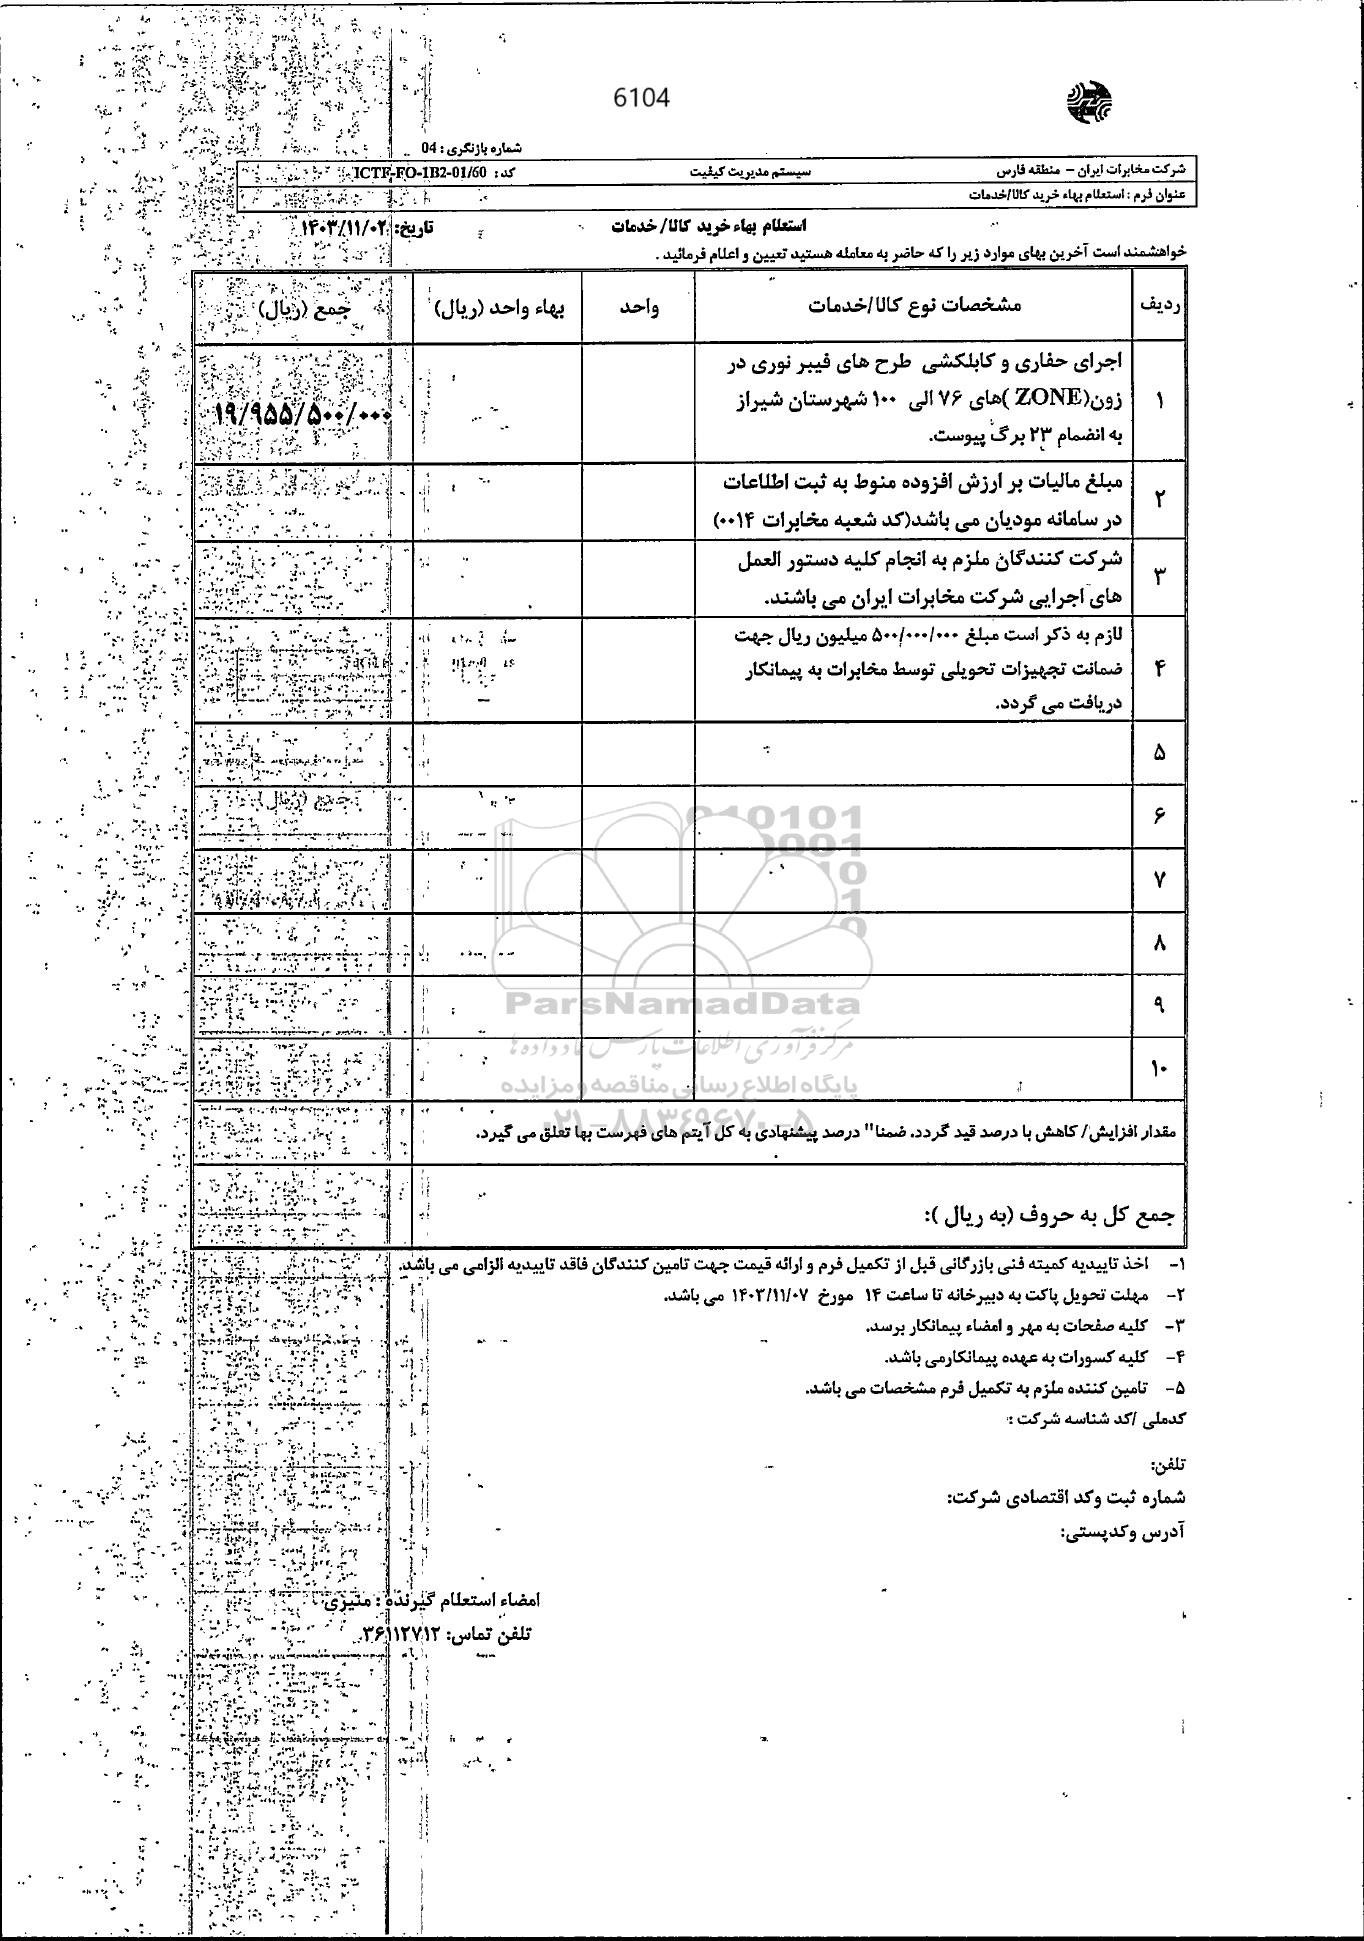 6104
شماره بازنگری : 04
شرکت مخابرات ایران – منطقه فارس
سیستم مدیریت کیفیت
کد : ICTF-FO-1B2-01/60
عنوان فرم : استعلام بهاء خرید کالا/خدمات
استعلام بهاء خرید کالا/ خدمات
تاریخ: ۱۴۰۳/۱۱/۰۲
خواهشمند است آخرین بهای موارد زیر را که حاضر به معامله هستید تعیین و اعلام فرمائید .
ردیف
مشخصات نوع کالا/خدمات
واحد
بهاء واحد (ریال)
جمع (ریال)
۱
اجرای حفاری و کابلکشی طرح های فیبر نوری در
زون(ZONE )های ۷۶ الی ۱۰۰ شهرستان شیراز
به انضمام ۲۳ برگ پیوست.
۱۹/۹۵۵/۵۰۰/۰۰۰
۲
مبلغ مالیات بر ارزش افزوده منوط به ثبت اطلاعات
در سامانه مودیان می باشد(کد شعبه مخابرات ۰۰۱۴)
۳
شرکت کنندگان ملزم به انجام کلیه دستور العمل
های اجرایی شرکت مخابرات ایران می باشند.
۴
لازم به ذکر است مبلغ ۵۰۰/۰۰۰/۰۰۰ میلیون ریال جهت
ضمانت تجهیزات تحویلی توسط مخابرات به پیمانکار
دریافت می گردد.
۵
۶
۷
۸
۹
۱۰
ParsNamadData
مرکز فرآوری اطلاعات پارس نماد داده ها
پایگاه اطلاع رسانی مناقصه و مزایده
۰۲۱-۸۸۳۴۹۶۷۰-۵
مقدار افزایش/ کاهش با درصد قید گردد. ضمنا" درصد پیشنهادی به کل آیتم های فهرست بها تعلق می گیرد.
جمع کل به حروف (به ریال ):
۱- اخذ تاییدیه کمیته فنی بازرگانی قبل از تکمیل فرم و ارائه قیمت جهت تامین کنندگان فاقد تاییدیه الزامی می باشد.
۲- مهلت تحویل پاکت به دبیرخانه تا ساعت ۱۴ مورخ ۱۴۰۳/۱۱/۰۷ می باشد.
۳- کلیه صفحات به مهر و امضاء پیمانکار برسد.
۴- کلیه کسورات به عهده پیمانکارمی باشد.
۵- تامین کننده ملزم به تکمیل فرم مشخصات می باشد.
کدملی /کد شناسه شرکت :
تلفن:
شماره ثبت وکد اقتصادی شرکت:
آدرس وکدپستی:
امضاء استعلام گیرنده : منیزی
تلفن تماس: ۳۶۱۱۲۷۱۲